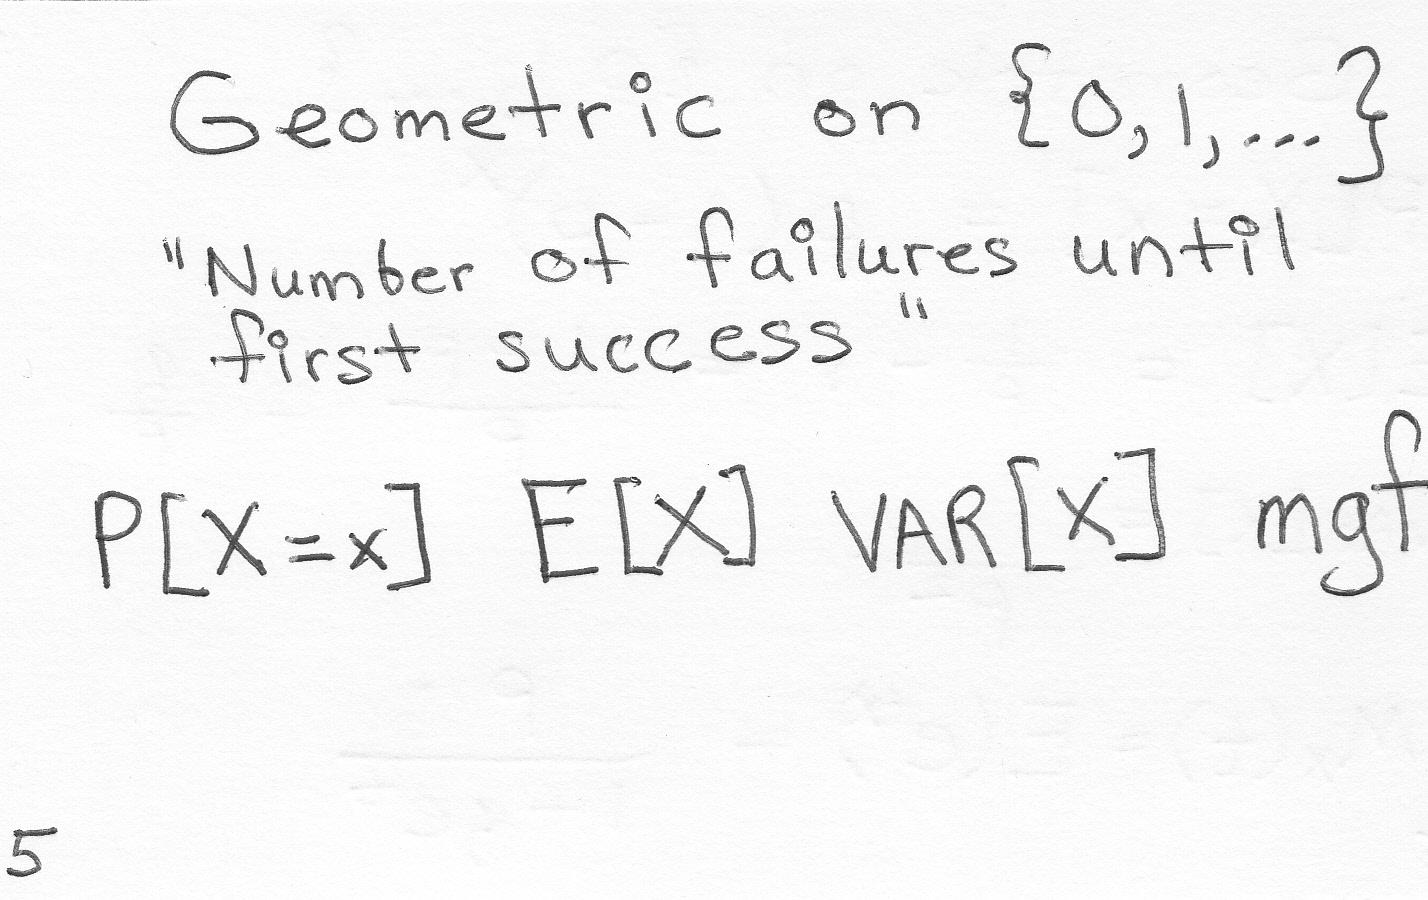 Geometric on {0,1,...}
"Number of failures until
first success"
P[X=x] E[X] VAR[X] mgf
5